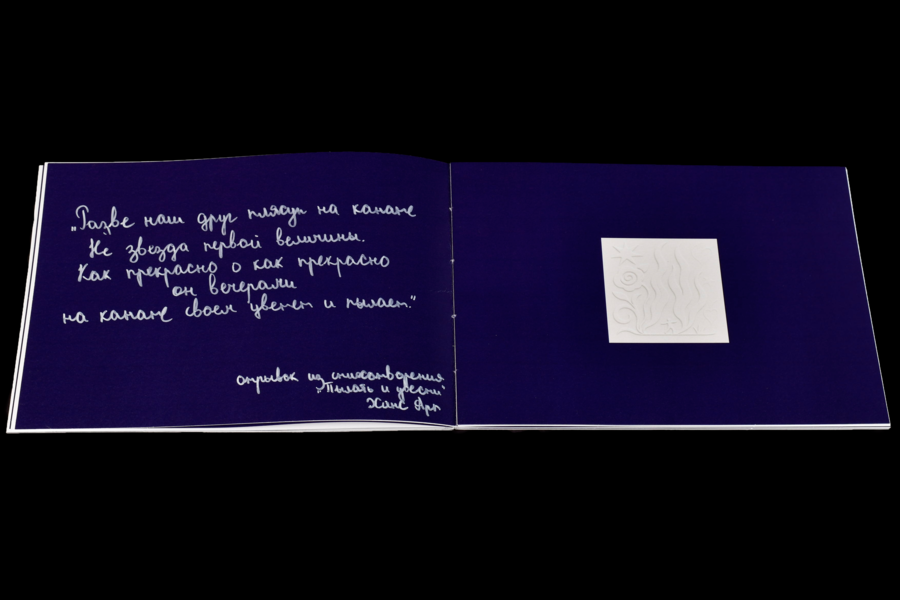 „Разве наш друг плясун на канате
Не звезда первой величины.
Как прекрасно о как прекрасно
он вечерами
на канате своем цветет и пылает."
отрывок из стихотворения
„Пылать и цвести"
Ханс Арп